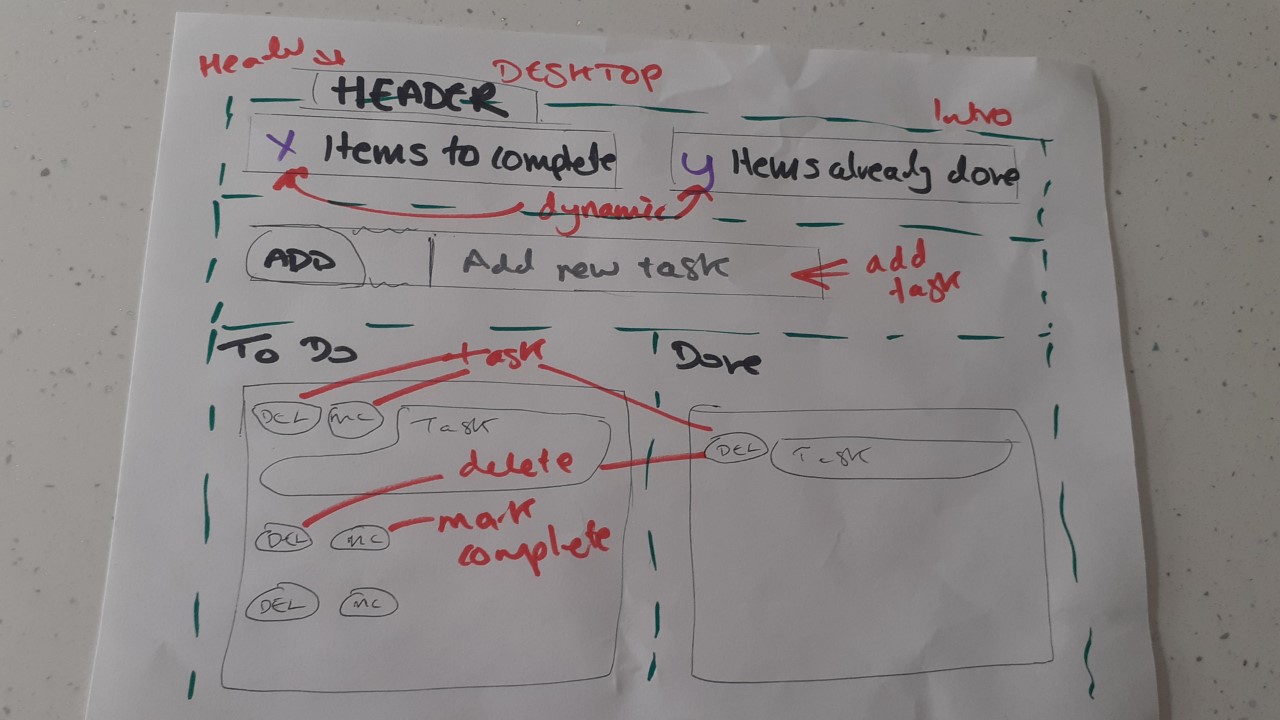 Header
DESKTOP
HEADER
Intro
X Items to complete
y Items already done
dynamic
ADD
Add new task
add
task
To Do
task
Done
DEL MC Task
delete
DEL Task
DEL MC
mark
complete
DEL MC